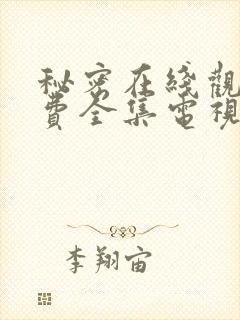 秘密在綫觀
費全集電視
李翔宙